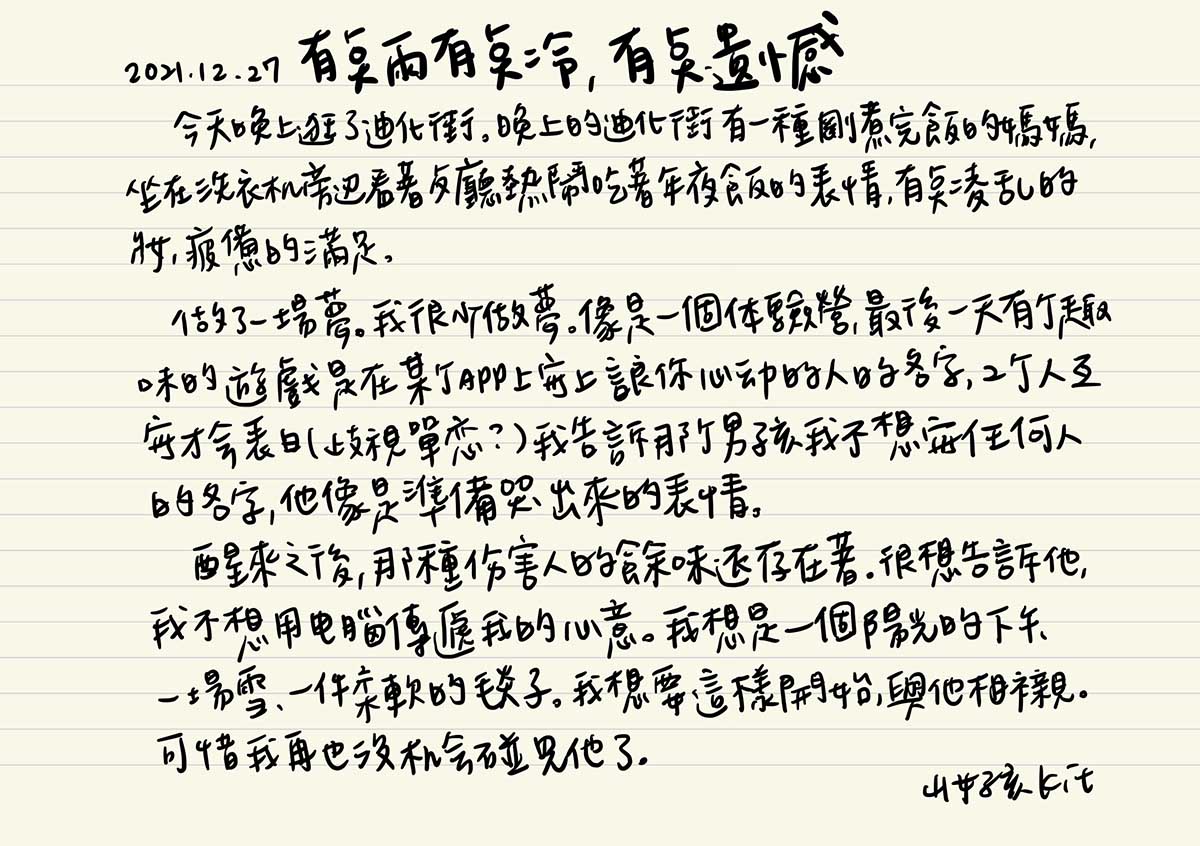 2021.12.27 有点雨有点冷,有点遺憾
今天晚上逛了迪化街。晚上的迪化街有一種剛煮完飯的媽媽,
坐在洗衣机旁边看著客廳熱鬧吃著年夜飯的表情,有点凌乱的
妝,疲憊的滿足。
做了一場夢。我很少做夢。像是一個体驗營,最後一天有个趣
味的遊戲是在某个APP上寫上讓你心动的人的名字,2个人互
寫才会表白(歧視單恋?)我告訴那个男孩我不想寫任何人
的名字,他像是準備哭出來的表情。
醒來之後,那種伤害人的餘味还存在著.很想告訴他,
我不想用电腦傳遞我的心意。我想是一個陽光的下午、
一場雪、一件柔軟的毯子。我想要這樣開始,與他相親。
可惜我再也沒机会碰見他了。
山女孩kit